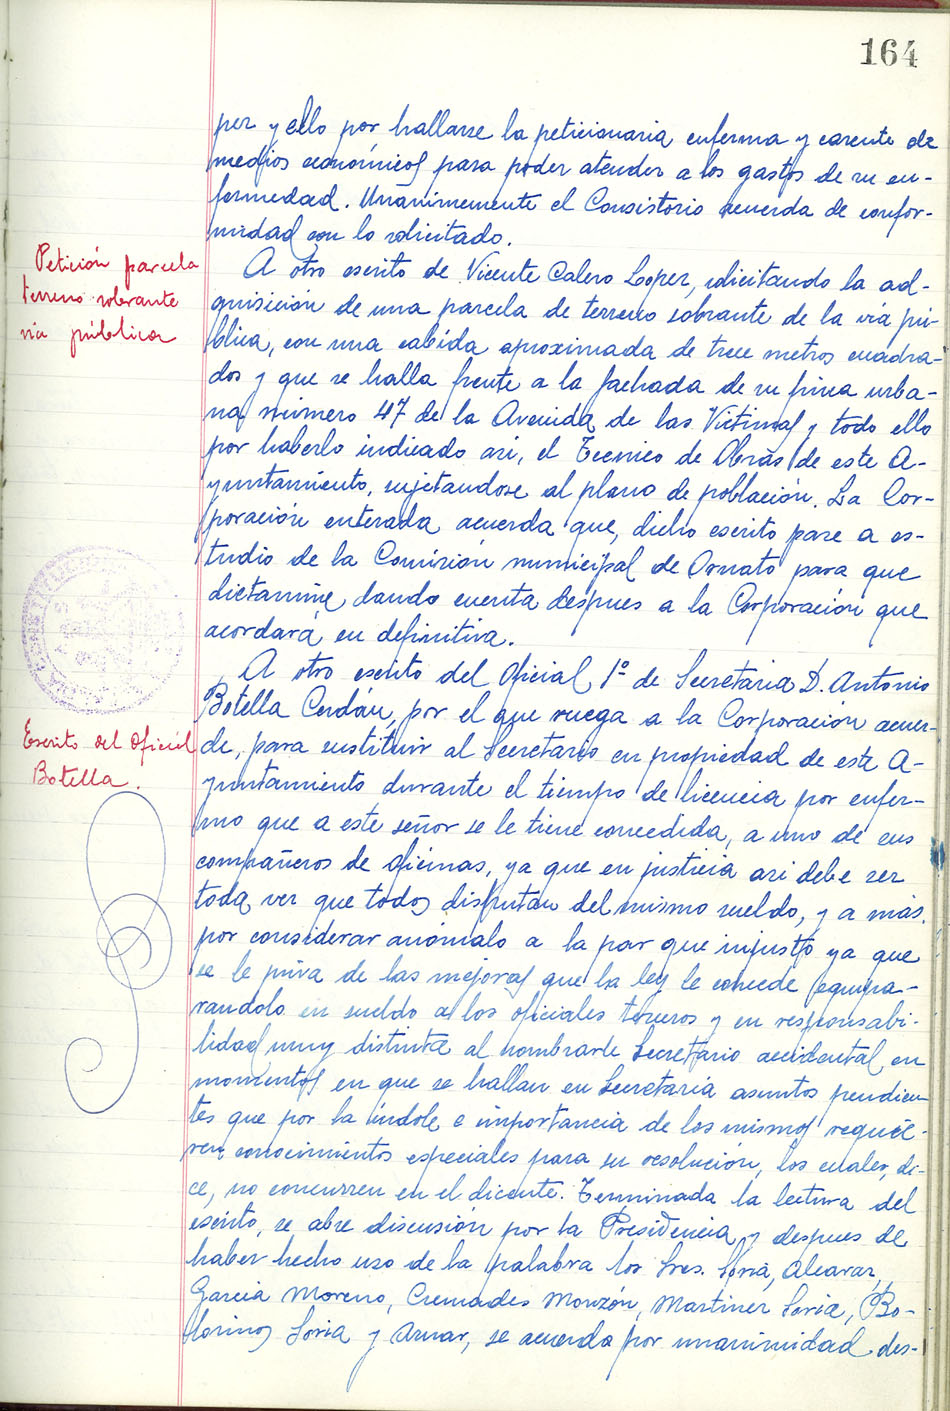 164
per y ello por hallarse la peticionaria enferma y carente de
medios económicos para poder atender a los gastos de su en-
fermedad. Unanimemente el Consistorio acuerda de confor-
midad con lo solicitado.
Petición parcela
terreno sobrante
via pública
A otro escrito de Vicente Calero Lopez, solicitando la ad-
quisición de una parcela de terreno sobrante de la vía pú-
blica, con una cabida aproximada de trece metros cuadra-
dos y que se halla frente a la fachada de su finca urba-
na número 47 de la Avenida de las Victimas y todo ello
por haberlo indicado asi, el Tecnico de Obras de este A-
yuntamiento, sujetandose al plano de población. La Cor-
poración enterada acuerda que, dicho escrito pase a es-
tudio de la Comisión municipal de Ornato para que
dictamine, dando cuenta despues a la Corporación que
acordará en definitiva.
Escrito del Oficial
Botella.
A otro escrito del Oficial 1º de Secretaria D. Antonio
Botella Cerdán, por el que ruega a la Corporación acuer-
de, para sustituir al Secretario en propiedad de este A-
yuntamiento durante el tiempo de licencia por enfer-
mo que a este señor se le tiene concedida, a uno de sus
compañeros de Oficinas, ya que en justicia asi debe ser
toda vez que todos disfrutan del mismo sueldo, y a más
por considerar anómalo a la par que injusto ya que
se le priva de las mejoras que la ley le concede equipa-
randolo en sueldo a los oficiales terceros y en responsabi-
lidad muy distinta al nombrarle Secretario accidental en
momentos en que se hallan en Secretaría asuntos pendien-
tes que por la índole e importancia de los mismos requie-
ren conocimientos especiales para su resolución, los cuales, di-
ce, no concurren en el dicente. Terminada la lectura del
escrito, se abre discusión por la Presidencia y despues de
haber hecho uso de la palabra los Sres. Soria, Alcaraz,
Garcia Moreno, Cremades Monzón, Martinez Soria, Bo-
lorinos Soria y Aznar, se acuerda por unanimidad des-